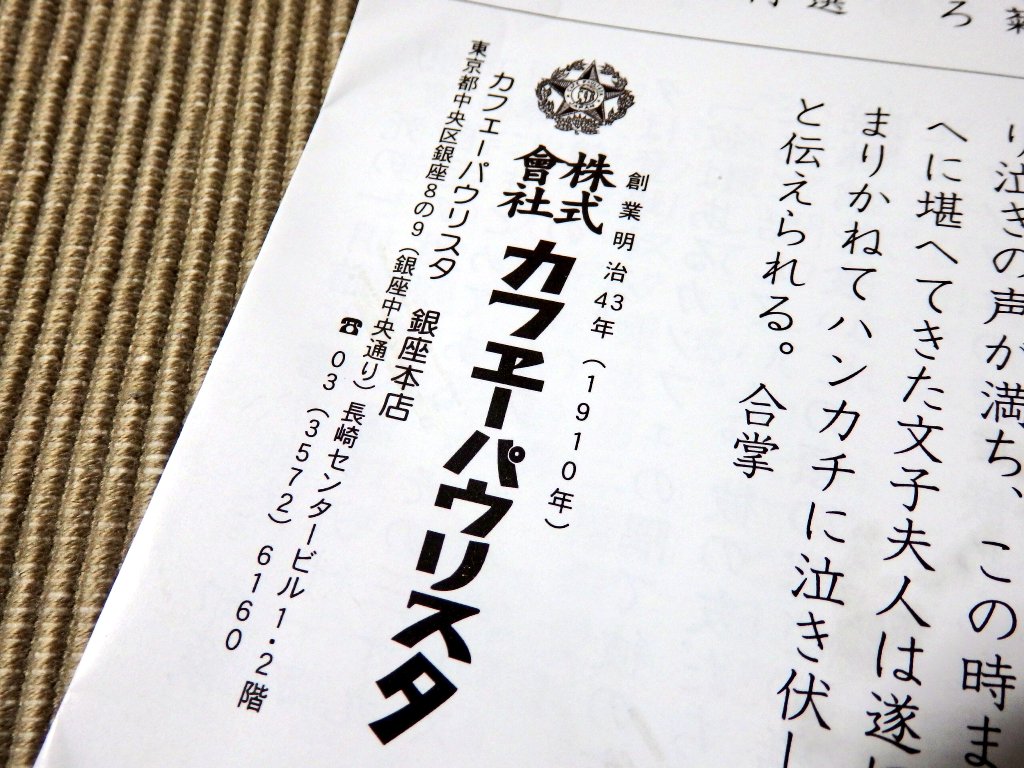 り泣きの声が満ち、この時ま
へに堪へてきた文子夫人は遂に
まりかねてハンカチに泣き伏し
と伝えられる。 合掌
創業明治43年(1910年)
株式會社 カフヱーパウリスタ
カフェーパウリスタ 銀座本店
東京都中央区銀座8の9(銀座中央通り)長崎センタービル1・2階
☎ 03(3572)6160